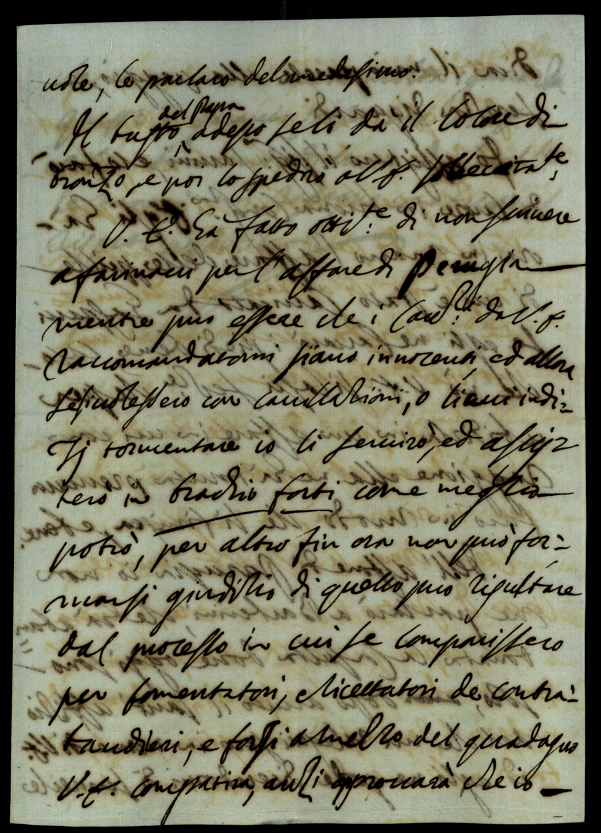 uole, le parlarò del medesimo.
Il busto del Papa adesso se li da il Colore di
bronzo, e poi lo spedirò a V. E. sollecitam.te
V. E. hà fatto ottim.te di non scriuere
a farinacci per l'affare di Perugia
mentre può essere che i Cau.ri da V. E.
raccomandatomi siano innocenti, ed allora
se si uolessero con cauillazioni, o lieui indi-
zj tormentare io li seruirò, ed assis-
terò in brachio forti come meglio
potrò, per altro fin ora non può for-
marsi giudizio di quello può risultare
dal processo in cui se comparissero
per fomentatori, e ricettatori de contra-
bandieri, e forsi a mezzo del guadagno
V. E. compatirà, anzi approuarà che io